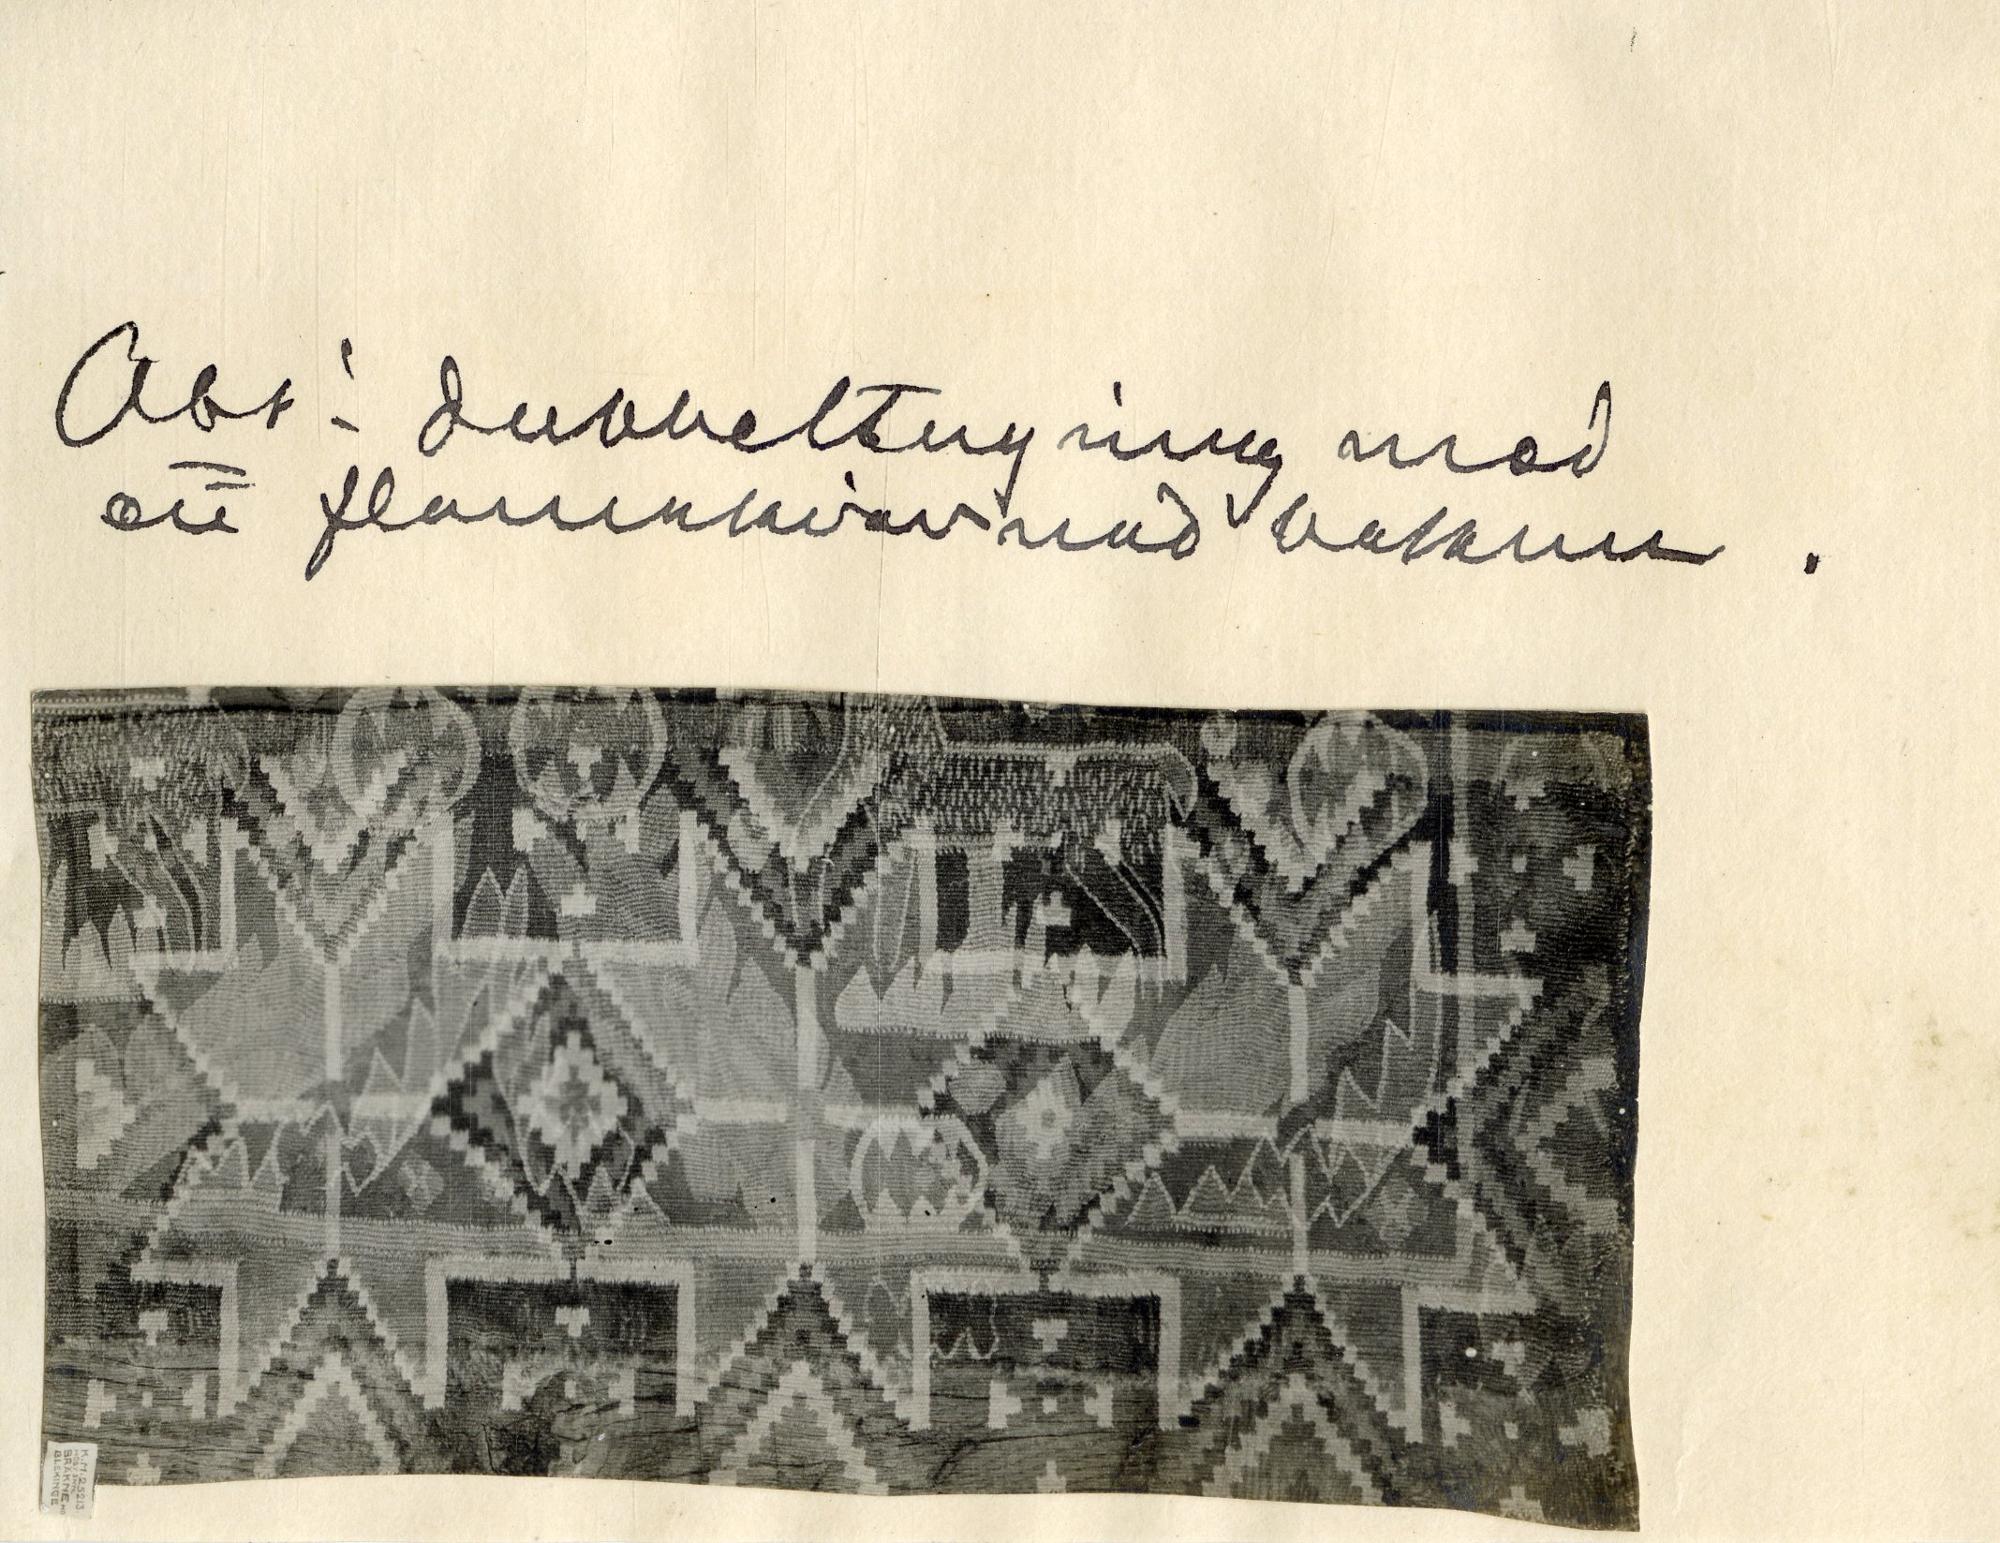 Obs! dubbeltagning med
en flamskvävnad bakom.
K.M. 25213
BRÄKNE HD
BLEKINGE